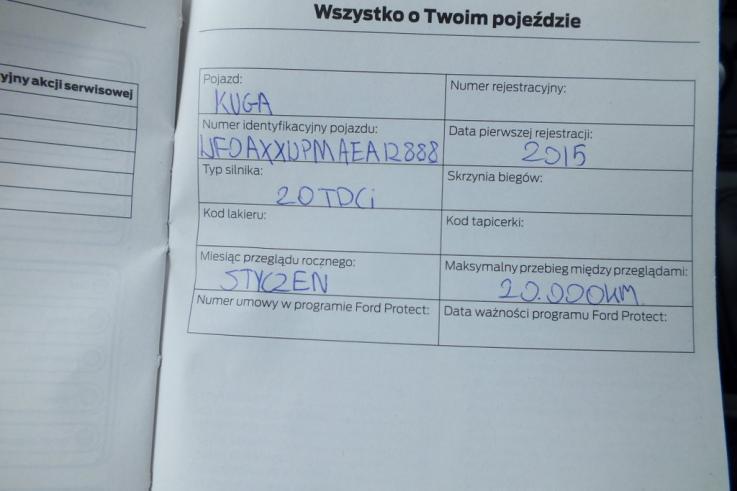 Wszystko o Twoim pojeździe
yjny akcji serwisowej
Pojazd:
KUGA
Numer rejestracyjny:
Numer identyfikacyjny pojazdu:
WF0AXXWPMAEA12888
Data pierwszej rejestracji:
2015
Typ silnika:
2.0 TDCi
Skrzynia biegów:
Kod lakieru:
Kod tapicerki:
Miesiąc przeglądu rocznego:
STYCZEN
Maksymalny przebieg między przeglądami:
20.000KM.
Numer umowy w programie Ford Protect:
Data ważności programu Ford Protect: